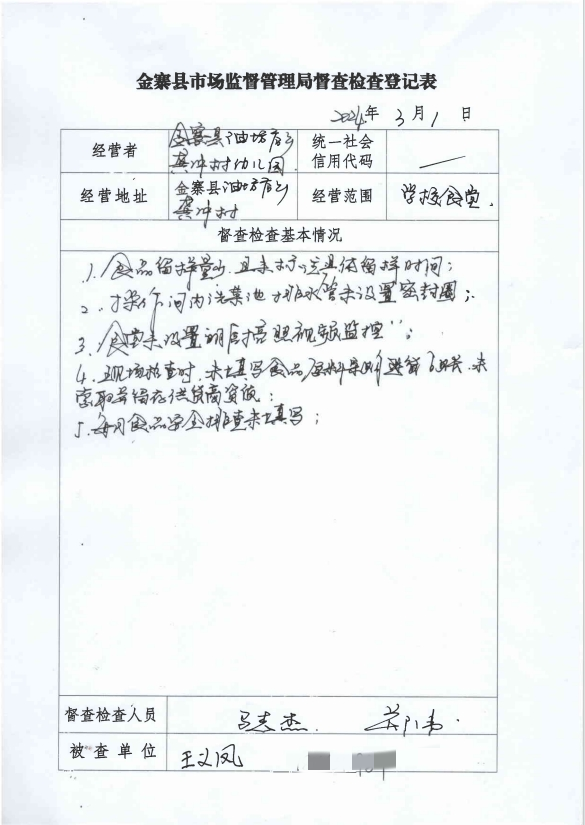 金寨县市场监督管理局督查检查登记表
2024年 3月1日
经营者 金寨县油坊店乡 统一社会
龚冲村幼儿园 信用代码 —
经营地址 金寨县油坊店乡 经营范围 学校食堂
龚冲村
督查检查基本情况
1、食品留样量少,且未标注具体留样时间;
2、操作间内洗菜池排水管未设置密封圈;
3、食堂未设置明厨亮照视频监控";
4、现场检查时,未填写食品原料采购进货台账,未
索取并留存供货商资质;
5、每月食品安全排查未填写;
督查检查人员 马志杰
被查单位 王义凤